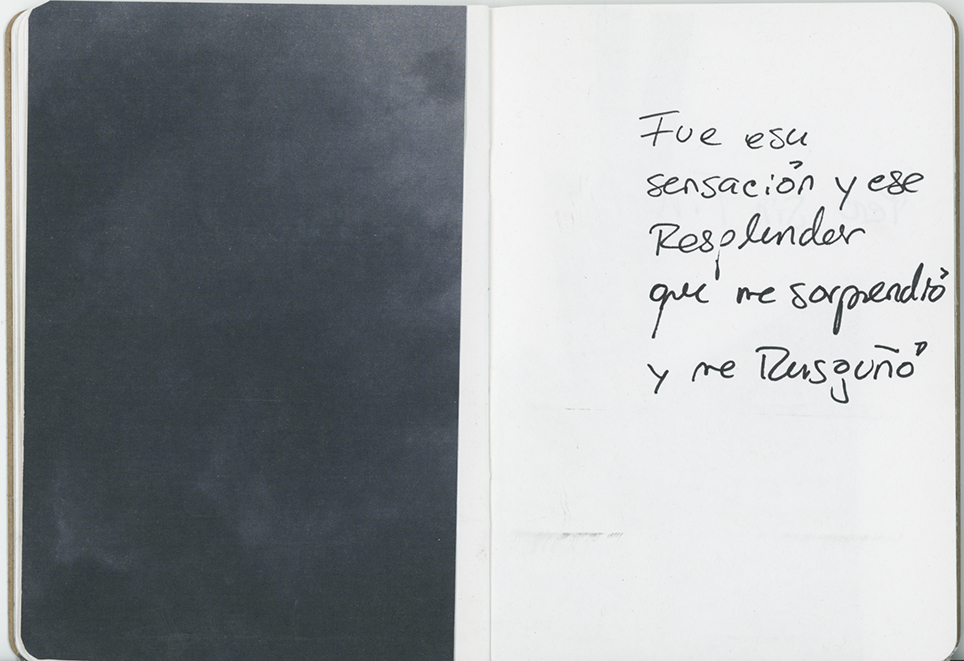 Fue esa
sensación y ese
Resplandor
que me sorprendió
y me Rasguñó